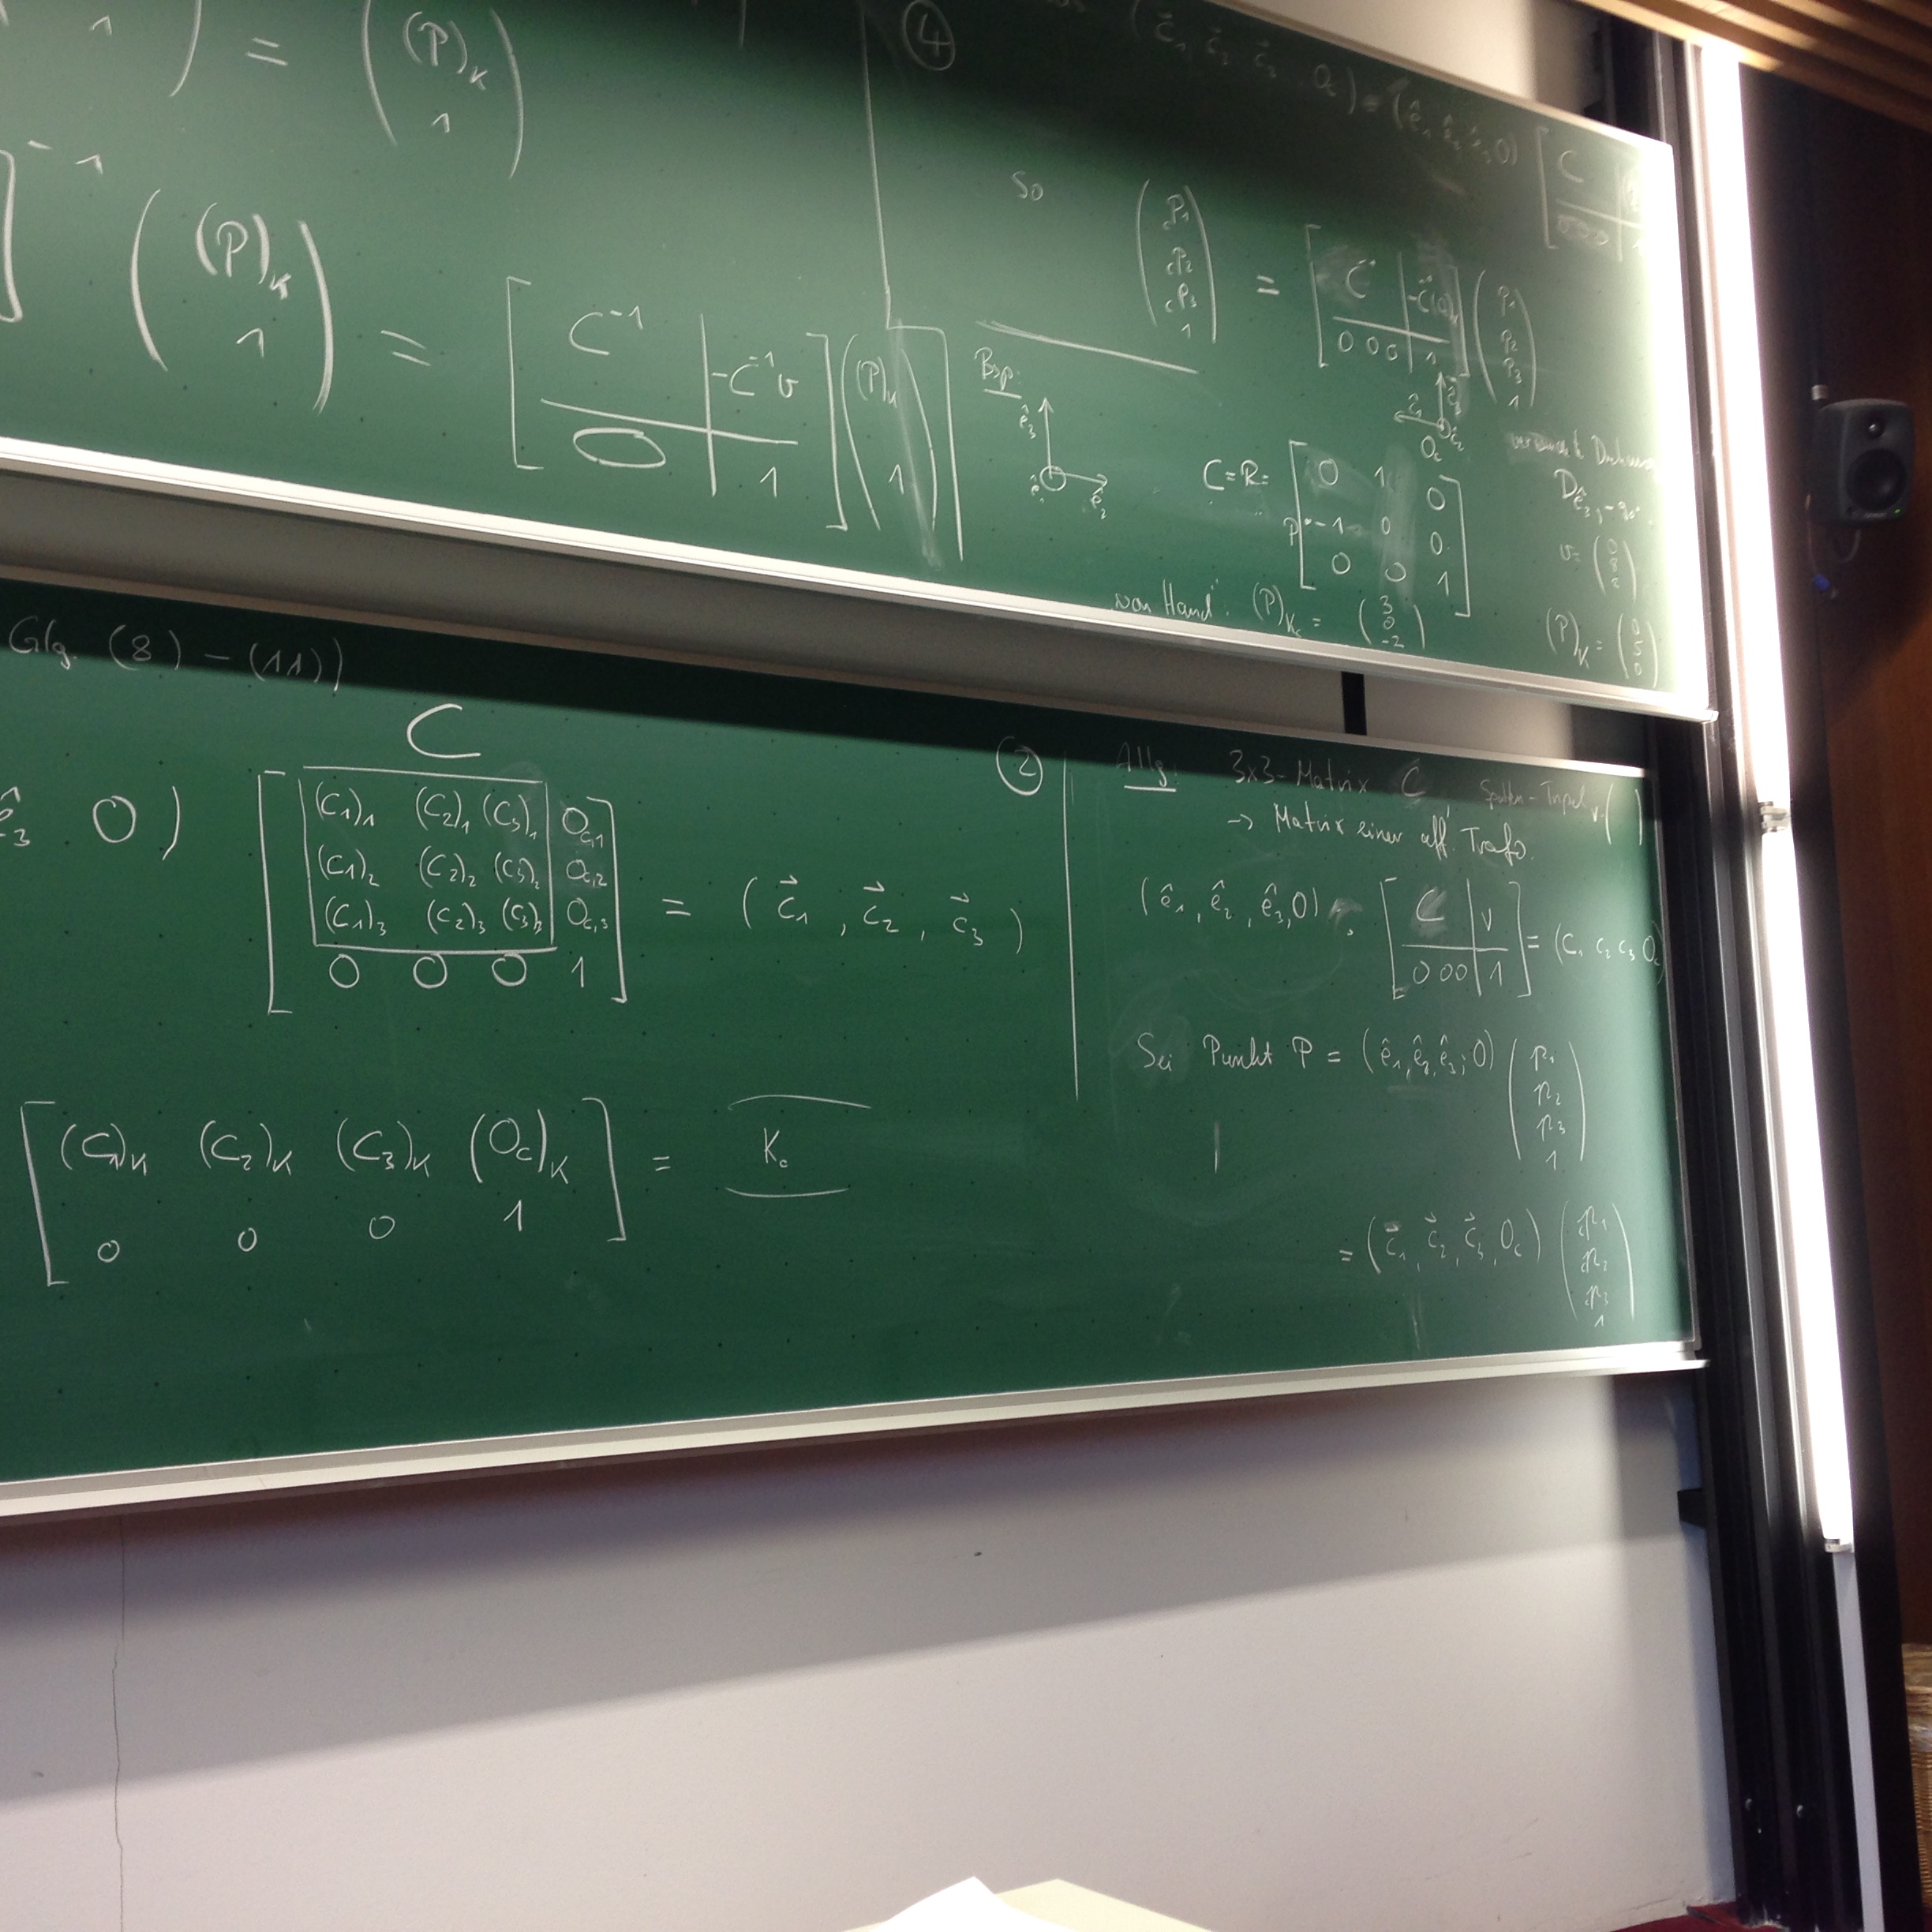 1 ) = ( (P)_K 1 )
]⁻¹ ( (P)_K 1 ) = [ C⁻¹ | -C⁻¹v ; O | 1 ] ( (P)_K 1 )
④
(c⃗₁ c⃗₂ c⃗₃ O_c) = (ê₁, ê₂, ê₃, O) [ C ; 0 0 0 ]
So ( cP₁ cP₂ cP₃ 1 ) = [ C⁻¹ | -C⁻¹(O_c)_K ; 0 0 0 | 1 ] ( P₁ P₂ P₃ 1 )
Bsp:
ê₃
ê₁
ê₂
c⃗₃
O_c
C = R = [ 0 1 0 ; -1 0 0 ; 0 0 1 ]
P
D_{ê₃, -90°}
v = ( 0 8 2 )
"von Hand": (P)_Kc = ( 3 0 -2 )
(P)_K = ( 0 5 0 )
Glg. (8) – (11))
C
ê₃ O ) [ (C₁)₁ (C₂)₁ (C₃)₁ O_c,1 ; (C₁)₂ (C₂)₂ (C₃)₂ O_c,2 ; (C₁)₃ (C₂)₃ (C₃)₃ O_c,3 ; 0 0 0 1 ] = ( c⃗₁ , c⃗₂ , c⃗₃ )
[ (C₁)_K (C₂)_K (C₃)_K (O_c)_K ; 0 0 0 1 ] = K_c
②
Allg: 3x3-Matrix C Spalten-Tripel v ( )
→ Matrix einer aff. Trafo.
(ê₁, ê₂, ê₃, O) [ C | v ; 0 0 0 | 1 ] = (c₁ c₂ c₃ O_c)
Sei Punkt P = (ê₁, ê₂, ê₃; O) ( p₁ p₂ p₃ 1 )
= (c⃗₁, c⃗₂, c⃗₃, O_c) ( cp₁ cp₂ cp₃ 1 )